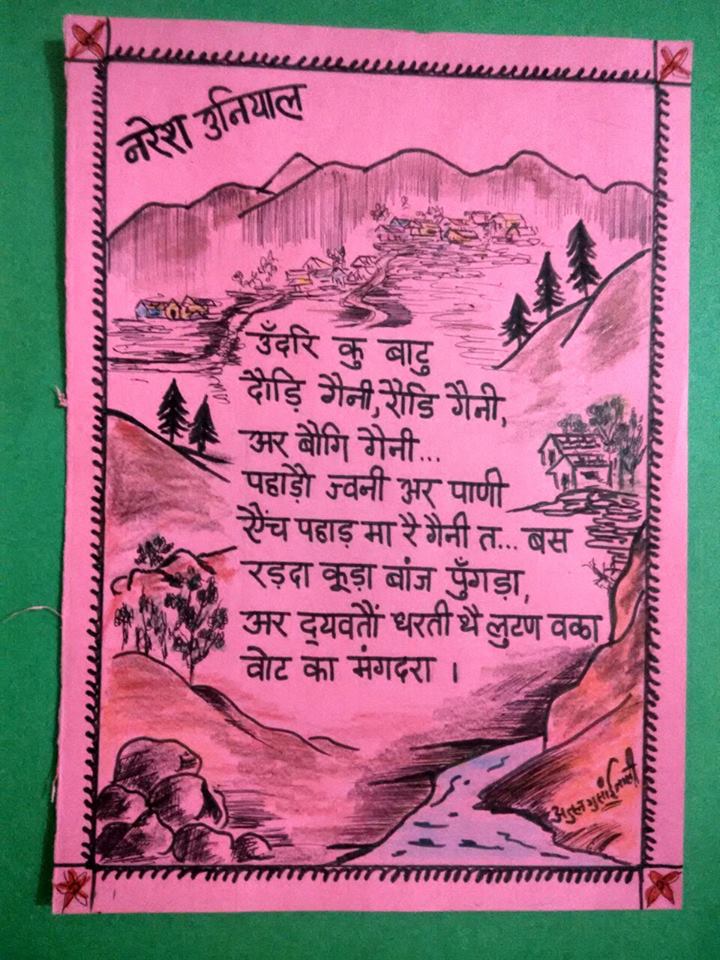 नरेश उनियाल
उँदरि कु बाटु
दौड़ि गैनी, रौडि गैनी,
अर बौगि गैनी...
पहाड़ौ ज्वनी अर पाणी
ऐंच पहाड़ मा रै गैनी त... बस
रड़दा कूड़ा बांज पुँगड़ा,
अर द्यवतौं धरती थै लुटण वळा
वोट का मंगदरा ।
अतुल गुसाईं